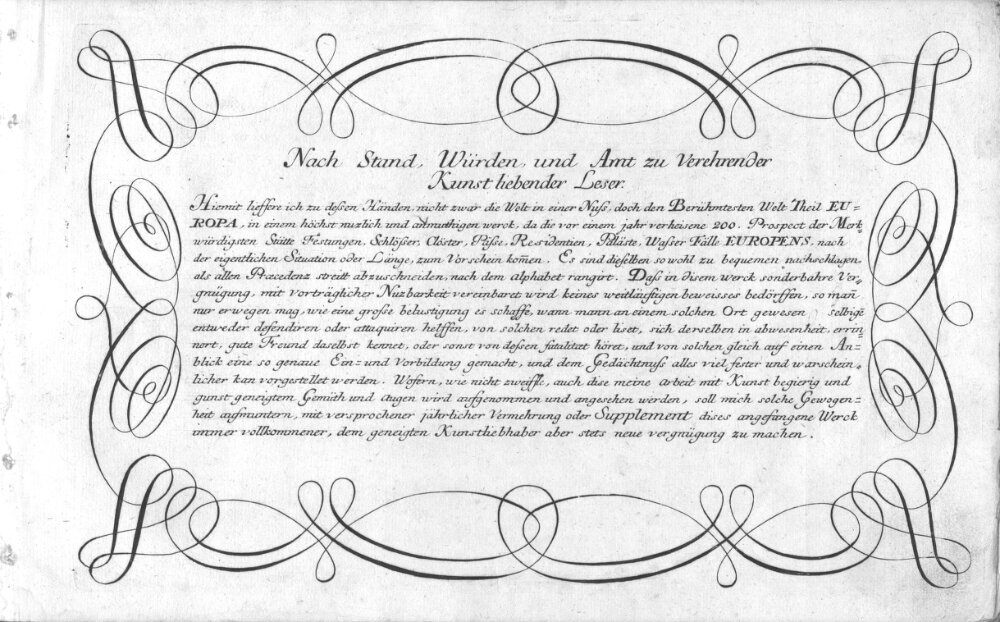 Nach Stand, Würden, und Amt zu Verehrender
Kunst liebender Leser.
Hiemit lieffere ich zu deßen Händen, nicht zwar die Welt in einer Nuß, doch den Berühmtesten Welt Theil EU=
ROPA, in einem höchst nuzlich und anmuthigen werck, da die vor einem jahr verheisene 200. Prospect der Merk
würdigsten Stätte Festungen, Schlößer, Clöster, Päße, Residentien, Palläste, Waßer Fälle EUROPENS, nach
der eigentlichen Situation oder Länge, zum Vorschein kom̄en. Es sind dieselben so wohl zu bequemen nachschlagen,
als allen Præcedenz streitt abzuschneiden, nach dem alphabet rangirt. Daß in disem werck sonderbahre Ver=
gnügung, mit vorträglicher Nuzbarkeit vereinbaret wird keines weitläuftigen beweisses bedörffen, so man̄
nur erwegen mag, wie eine große belustigung es schaffe, wann mann an einem solchen Ort gewesen, selbige
entweder defendiren oder attaquiren helffen, von solchen redet oder liset, sich derselben in abwesenheit, errin
nert, gute Freund daselbst kennet, oder sonst von deßen fatalitæt höret, und von solchen gleich auf einen An=
blick eine so genaue Ein= und Vorbildung gemacht, und dem Gedächtnuß alles viel fester und warschein=
licher kan vorgestellet werden. Wofern, wie nicht zweiffle, auch dise meine arbeit mit Kunst begierig und
gunst geneigtem Gemüth und augen wird aufgenommen und angesehen werden, soll mich solche Gewogen=
heit aufmuntern, mit versprochener jährlicher Vermehrung oder Supplement dises angefangene Werck
immer vollkommener, dem geneigten Kunstliebhaber aber stets neue vergnügung zu machen.